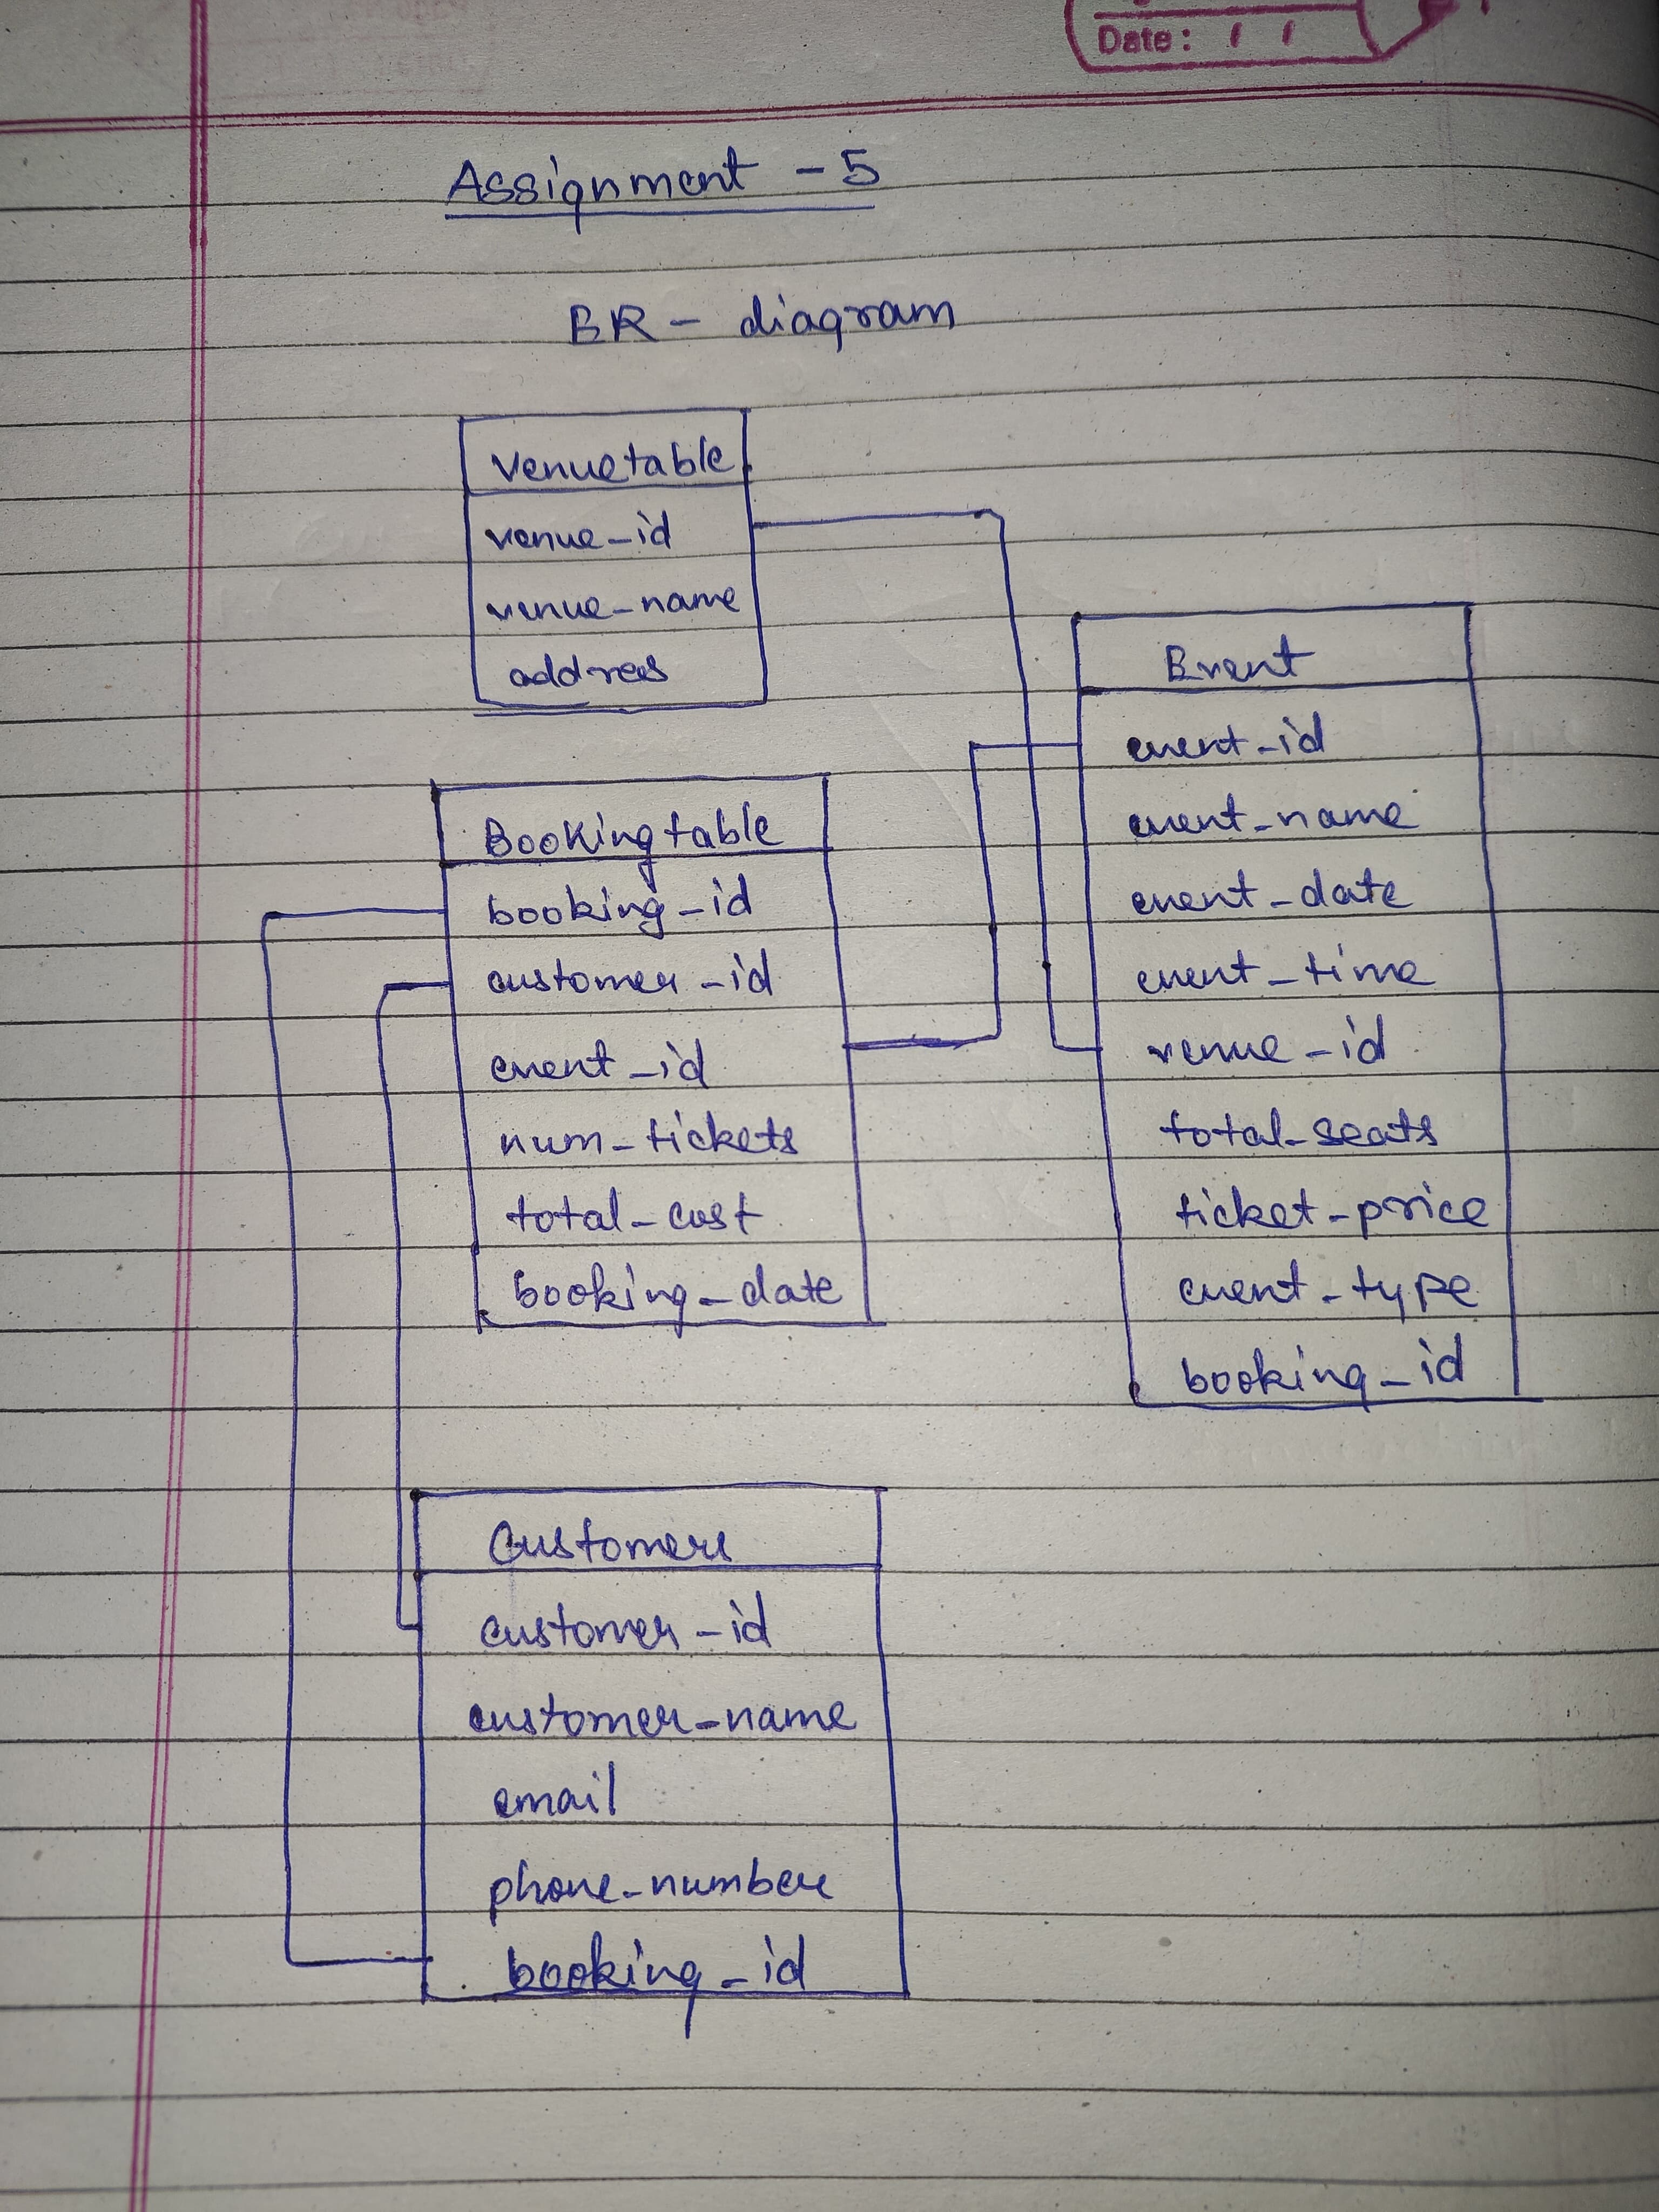 Date:
Assignment - 5
ER - diagram
Venuetable
venue_id
venue_name
address
Event
event_id
event_name
event_date
event_time
venue_id
total_seats
ticket_price
event_type
booking_id
Bookingtable
booking_id
customer_id
event_id
num_tickets
total_cost
booking_date
Customers
customer_id
customer_name
email
phone_number
booking_id